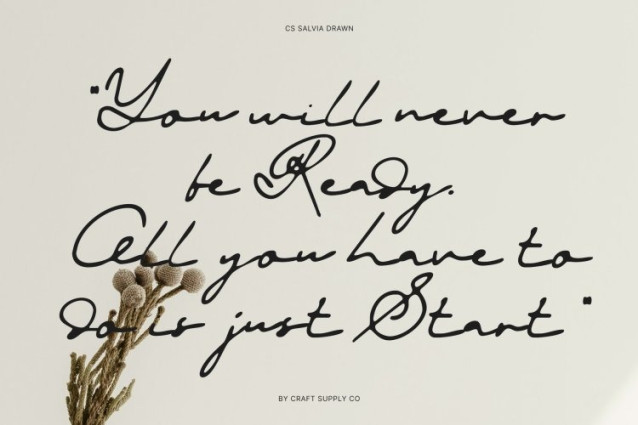 CS SALVIA DRAWN
"You will never
be Ready.
All you have to
do is just Start"
BY CRAFT SUPPLY CO